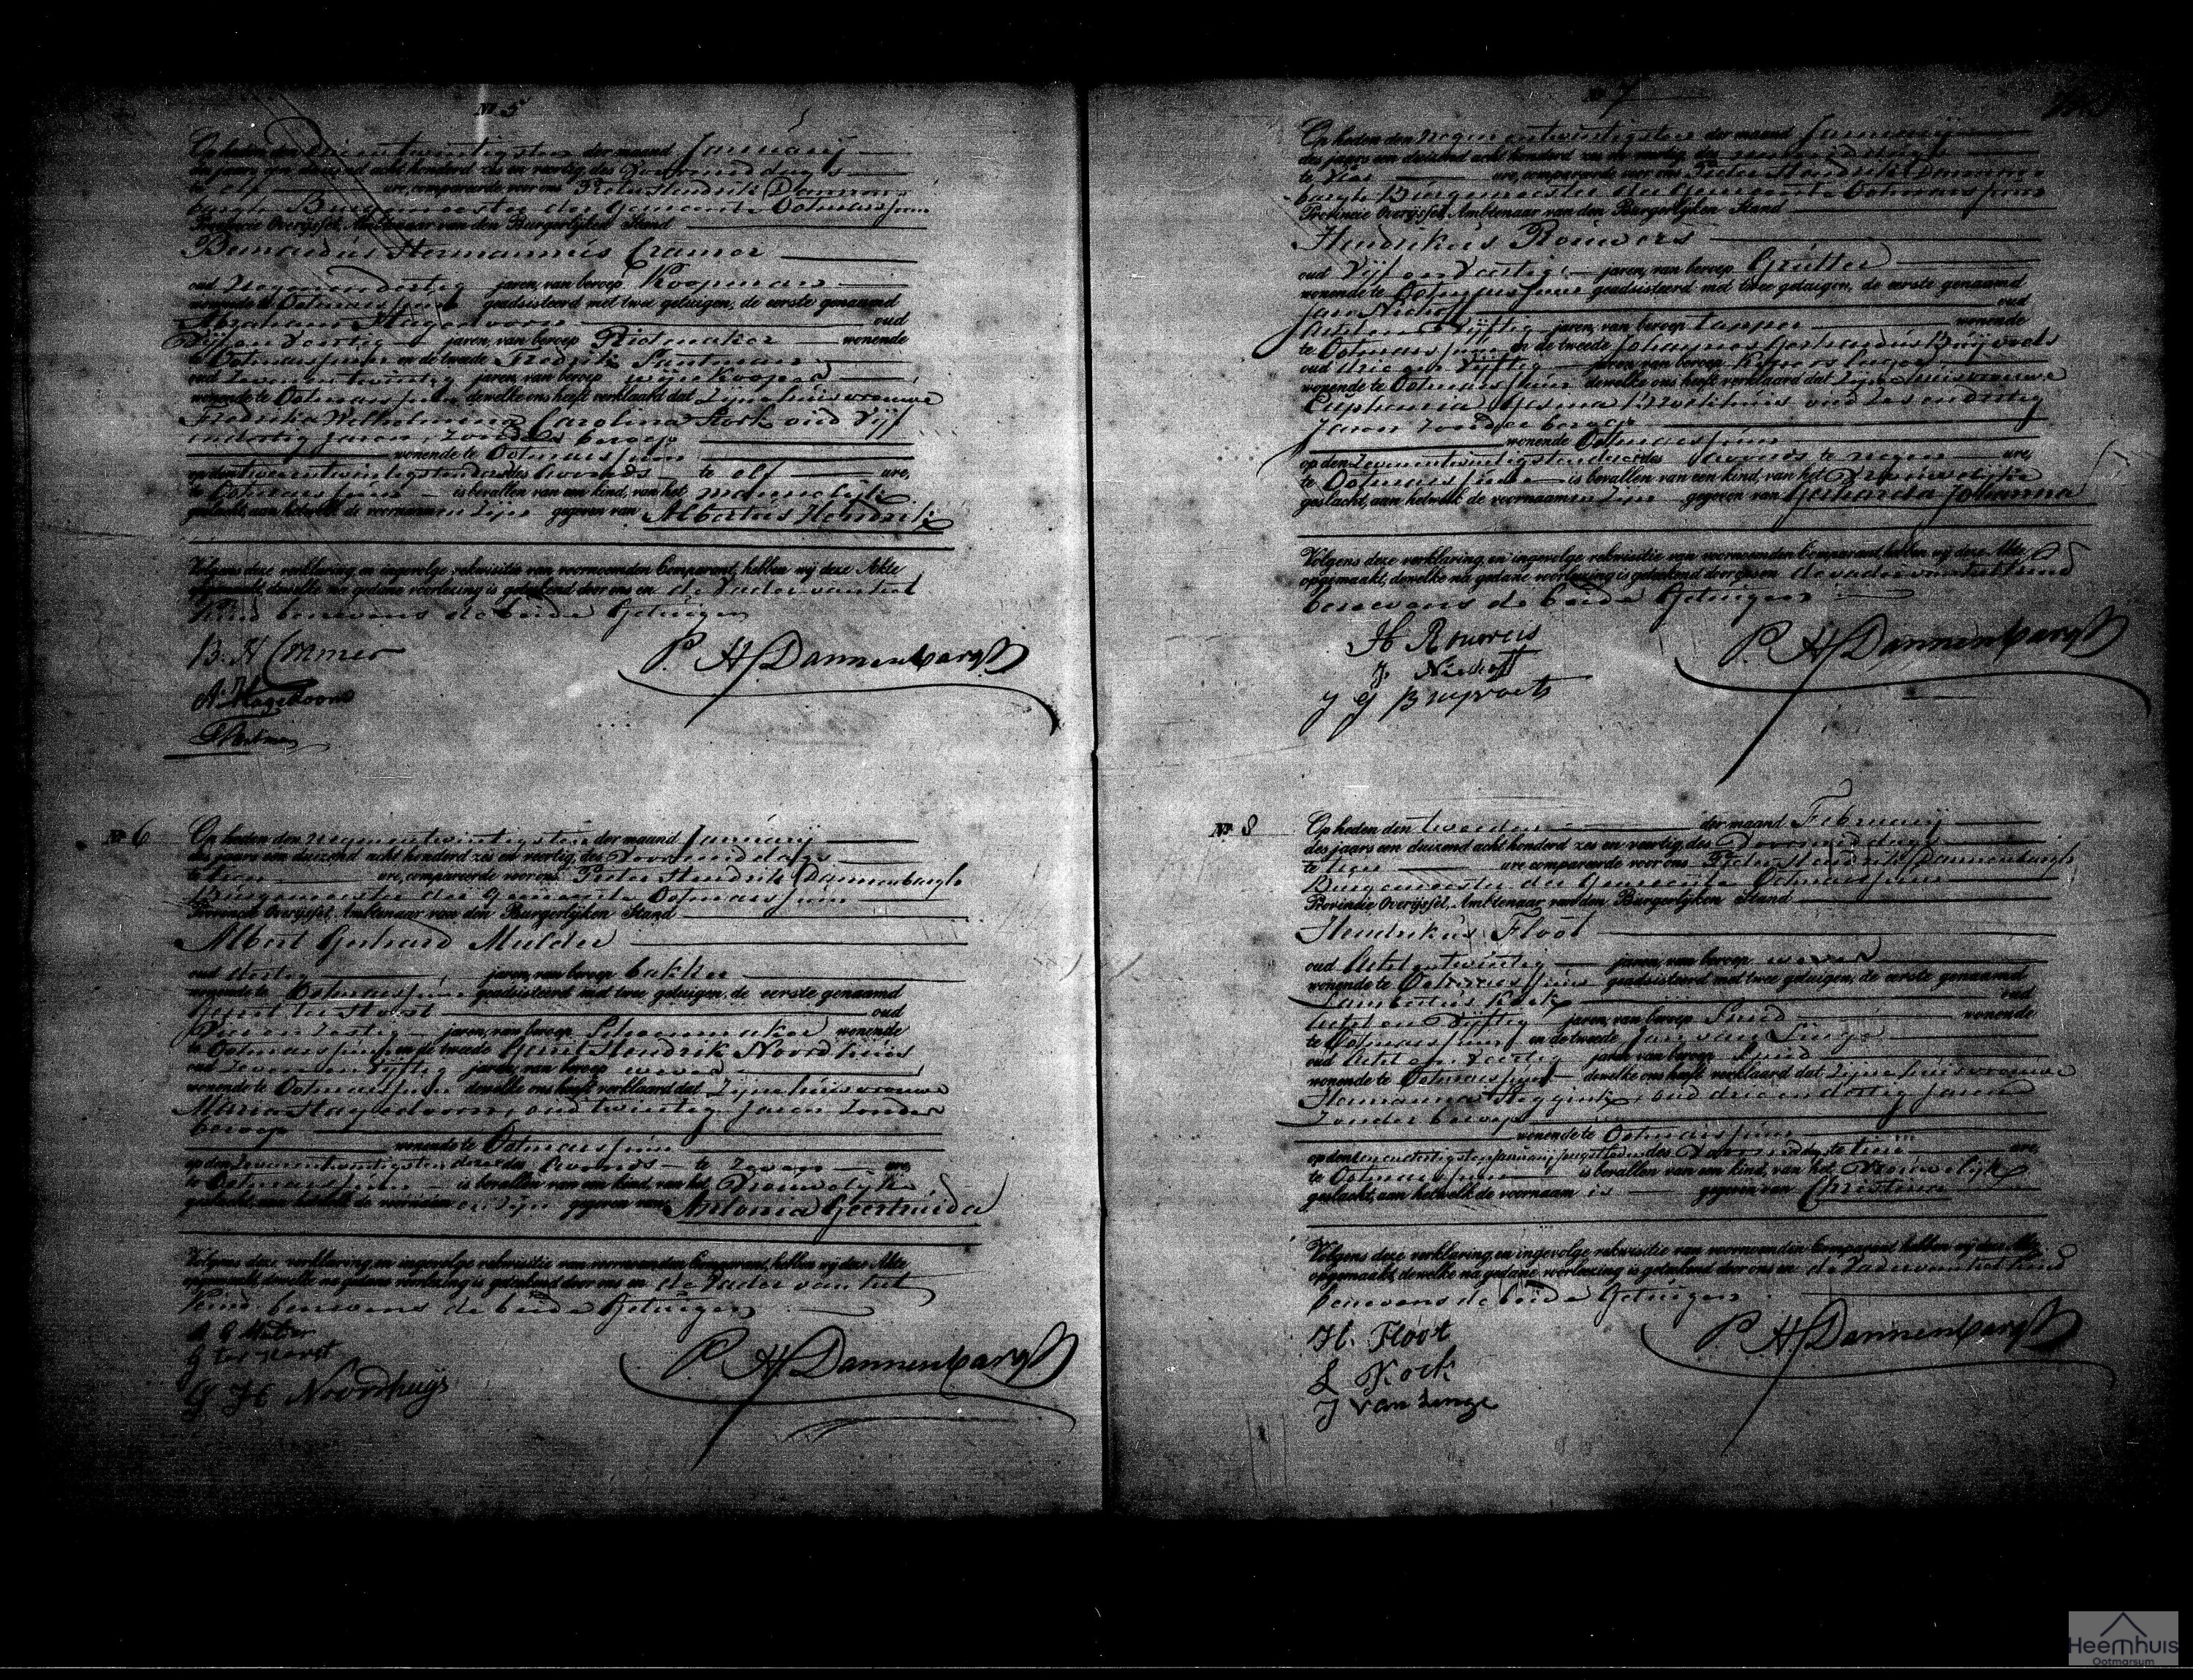 No 5
Op heden den drie en twintigsten der maand Januarij
des jaars een duizend acht honderd zes en veertig, des Voormiddags
te elf ure, compareerde voor ons Pieter Hendrik Dannen-
bargh Burgemeester der Gemeente Ootmarssum
Provincie Overijssel, Ambtenaar van den Burgerlijken Stand
Bernardus Hermannus Cramer
oud Negenendertig jaren, van beroep Koopman
wonende te Ootmarssum geadsisteerd met twee getuigen, de eerste genaamd
Abraham Hagedoorn oud
Vijfenveertig jaren, van beroep wonende
te Ootmarssum en de tweede Fredrik
oud Zeven en twintig jaren, van beroep wijnkooper
wonende te Ootmarssum dewelke ons heeft verklaard dat Zijne huisvrouwe
Fredrika Wilhelmina Carolina Stork oud Vijf
endertig jaren, zonder beroep
wonende te Ootmarssum
op den tweeentwintigsten dezer des Avonds te elf ure,
te Ootmarssum is bevallen van een kind, van het mannelijk
geslacht, aan hetwelk de voornaamen Zijn gegeven van Albertus Hendrik
Volgens deze verklaring, en ingevolge rekwisitie van voornoemden Comparant, hebben wij deze Akte
opgemaakt, dewelke na gedane voorlezing is geteekend door ons en de Vader van het
Kind benevens de beide Getuigen
B. H Cramer
P. H Dannenbargh
A. Hagedoorn
No 6
Op heden den negenentwintigsten der maand Januarij
des jaars een duizend acht honderd zes en veertig, des Voormiddags
te tien ure, compareerde voor ons Pieter Hendrik Dannenbargh
Burgemeester der Gemeente Ootmarssum
Provincie Overijssel, Ambtenaar van den Burgerlijken Stand
Albert Gerhard Mulder
oud dertig jaren, van beroep bakker
wonende te Ootmarssum geadsisteerd met twee getuigen, de eerste genaamd
Gerrit ter Horst oud
en Zestig jaren, van beroep Schoenmaker wonende
te Ootmarssum en de tweede Gerrit Hendrik Noordhuis
oud Zeven en Vijftig jaren, van beroep wever
wonende te Ootmarssum dewelke ons heeft verklaard dat Zijne huisvrouwe
Maria Hagedoorn, oud twintig Jaren Zonder
beroep
wonende te Ootmarssum
op den Zevenentwintigsten dezer des Avonds te Zeven ure,
te Ootmarssum is bevallen van een kind, van het Vrouwelijke
geslacht, aan hetwelk de voornaamen Zijn gegeven van Antonia Geertruida
Volgens deze verklaring, en ingevolge rekwisitie van voornoemden Comparant, hebben wij deze Akte
opgemaakt, dewelke na gedane voorlezing is geteekend door ons en de Vader van het
Kind benevens de beide Getuigen
A G Mulder
G ter Horst
P. H Dannenbargh
G H Noordhuijs
No 7
Op heden den negenentwintigsten der maand Januarij
des jaars een duizend acht honderd zes en veertig, des
te Vier ure, compareerde voor ons Pieter Hendrik Dannen-
bargh Burgemeester der Gemeente Ootmarssum
Provincie Overijssel, Ambtenaar van den Burgerlijken Stand
Hendrikus Rouwers
oud Vijf en Veertig jaren, van beroep
wonende te Ootmarssum geadsisteerd met twee getuigen, de eerste genaamd
Jan Niehoff oud
Achten Vijftig jaren, van beroep tapper wonende
te Ootmarssum en de tweede Johannes Gerhardus Bruijvoets
oud drie en Vijftig jaren, van beroep
wonende te Ootmarssum dewelke ons heeft verklaard dat Zijne huisvrouwe
Euphemia Gesina oud Zes en dertig
Jaren Zonder beroep
wonende Ootmarssum
op den Zevenentwintigsten dezer des Avonds te negen ure,
te Ootmarssum is bevallen van een kind, van het Vrouwelijke
geslacht, aan hetwelk de voornaamen Zijn gegeven van Gerharda Johanna
Volgens deze verklaring, en ingevolge rekwisitie van voornoemden Comparant, hebben wij deze Akte
opgemaakt, dewelke na gedane voorlezing is geteekend door ons en de vader van het kind
benevens de beide Getuigen
H Rouwers
P. H Dannenbargh
J. Niehoff
J G Bruijvoets
No 8
Op heden den tweeden der maand Februarij
des jaars een duizend acht honderd zes en veertig, des Voormiddags
te tien ure compareerde voor ons Pieter Hendrik Dannenbargh
Burgemeester der Gemeente Ootmarssum
Provincie Overijssel, Ambtenaar van den Burgerlijken Stand
Hendrikus Floot
oud Achtentwintig jaren, van beroep wever
wonende te Ootmarssum geadsisteerd met twee getuigen, de eerste genaamd
Lambertus Kock oud
Acht en Vijftig jaren, van beroep wonende
te Ootmarssum en de tweede Jan van Linge
oud Acht en Veertig jaren van beroep
wonende te Ootmarssum dewelke ons heeft verklaard dat Zijne huisvrouwe
Hermanna oud drie en dertig Jaren
Zonder beroep
wonende te Ootmarssum
op den eenendertigsten Januarij jongstleden des Voormiddags te tien ure,
te Ootmarssum is bevallen van een kind, van het Vrouwelijke
geslacht, aan hetwelk de voornaam is gegeven van Christina
Volgens deze verklaring, en ingevolge rekwisitie van voornoemden Comparant hebben wij deze Akte
opgemaakt, dewelke na gedane voorlezing is geteekend door ons en de Vader van het Kind
benevens de beide Getuigen
H. Floot
P. H Dannenbargh
L Kock
J van Linge
Heemhuis
Ootmarsum